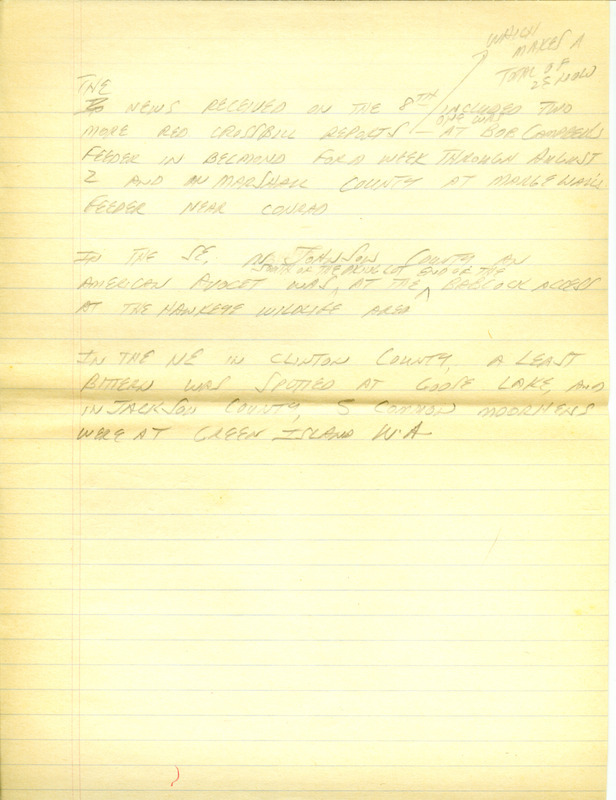 WHICH
MAKES A
TOTAL OF
25 NOW
THE
NEWS RECEIVED ON THE 8TH INCLUDED TWO
ONE WAS
MORE RED CROSSBILL REPORTS - AT BOB CAMPBELL'S
FEEDER IN BELMOND FOR A WEEK THROUGH AUGUST
2 AND IN MARSHALL COUNTY AT MARGE WALL'S
FEEDER NEAR CONRAD
IN THE SE, IN JOHNSON COUNTY AN
SOUTH OR THE PARKING LOT END OF THE
AMERICAN AVOCET WAS, AT THE BABCOCK ACCESS
AT THE HAWKEYE WILDLIFE AREA
IN THE NE IN CLINTON COUNTY, A LEAST
BITTERN WAS SPOTTED AT GOOSE LAKE, AND
IN JACKSON COUNTY, 5 COMMON MOORHENS
WERE AT GREEN ISLAND W.A